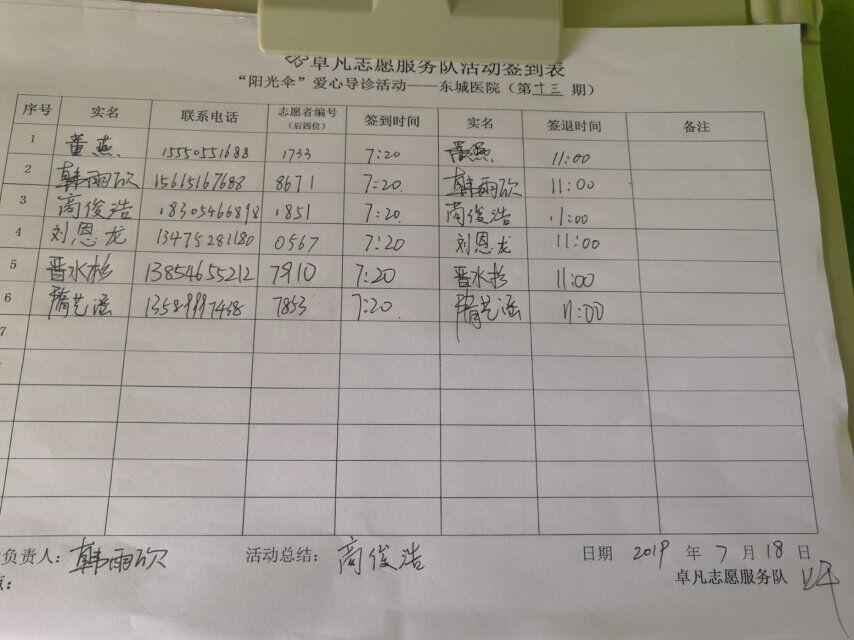 卓凡志愿服务队活动签到表
“阳光伞”爱心导诊活动——东城医院（第十三期）
序号 实名 联系电话 志愿者编号（后四位） 签到时间 实名 签退时间 备注
1 董燕 15550551688 1733 7:20 董燕 11:00
2 韩雨欣 15615167688 8671 7:20 韩雨欣 11:00
3 商俊浩 18305466898 1851 7:20 商俊浩 11:00
4 刘恩龙 13475281180 0567 7:20 刘恩龙 11:00
5 晋水杉 13854655212 7910 7:20 晋水杉 11:00
6 隋艺涵 13589997438 7853 7:20 隋艺涵 11:00
7
负责人：韩雨欣 活动总结：商俊浩 日期 2019 年 7 月 18 日
卓凡志愿服务队